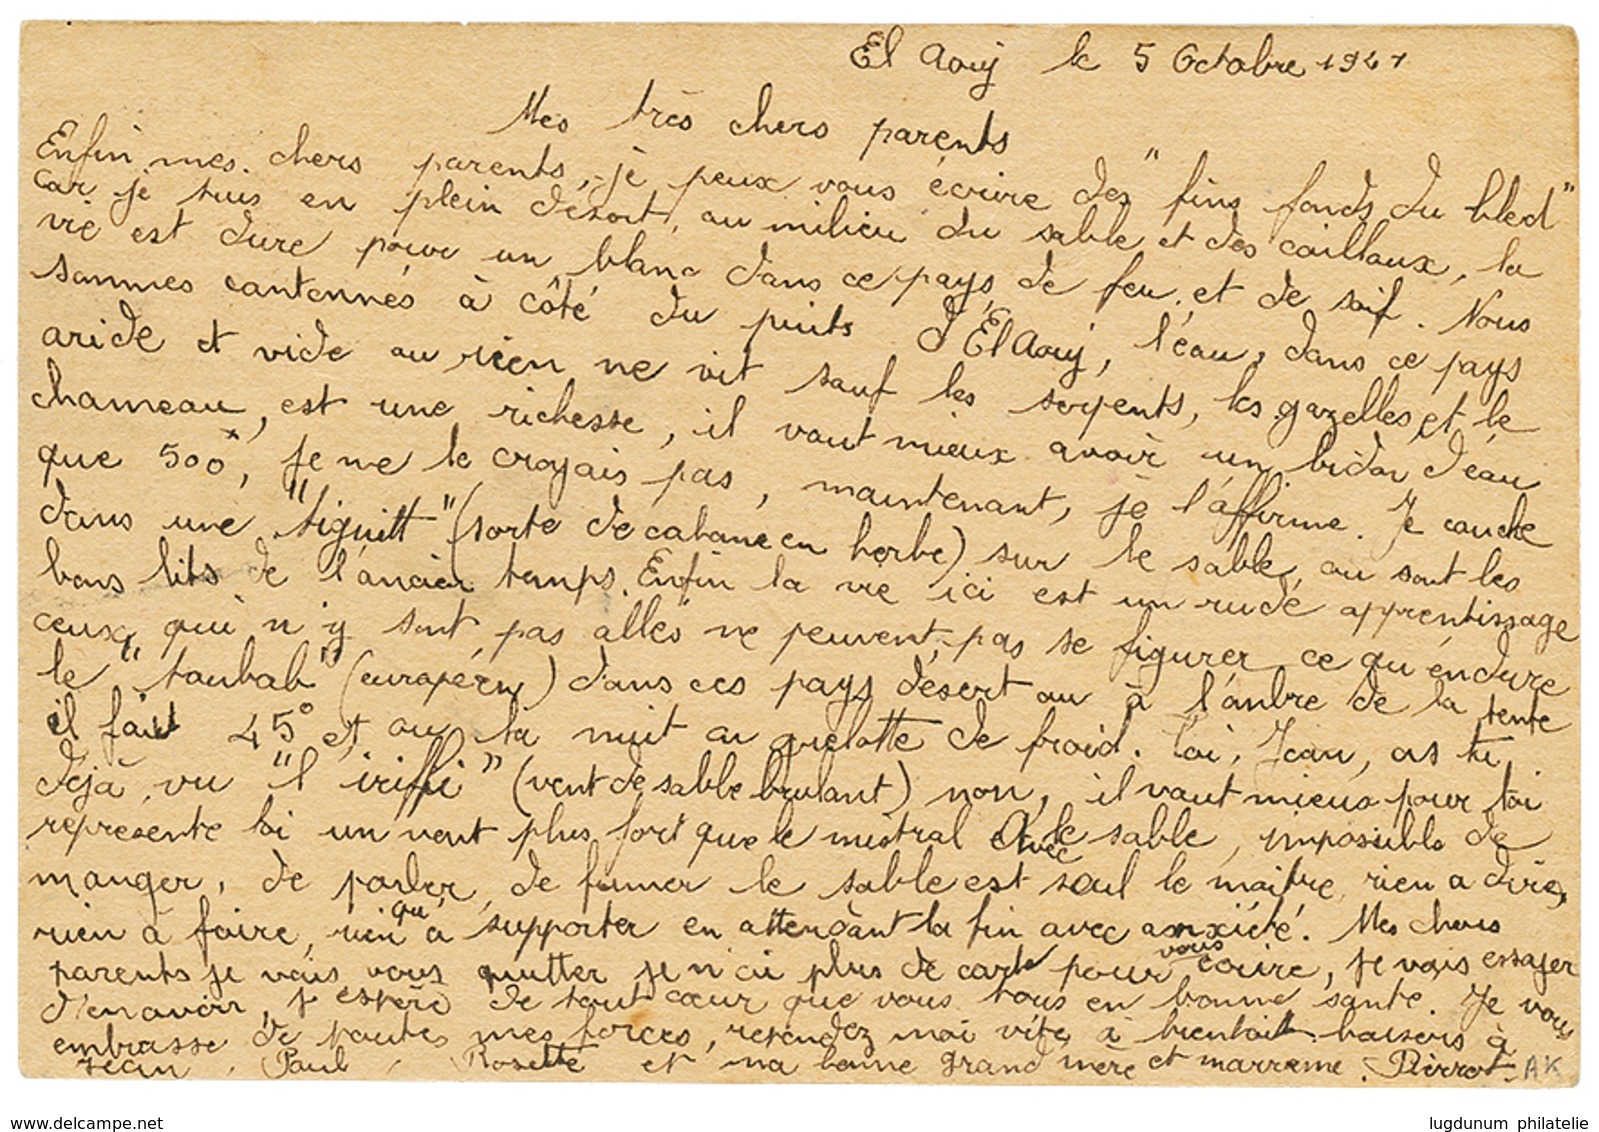 El Aouj le 5 Octobre 1941
Mes très chers parents
Enfin mes chers parents, je peux vous écrire des "fins fonds du bled"
car je suis en plein désert, au milieu du sable et des caillaux, la
vie est dure pour un blanc dans ce pays de feu et de soif. Nous
sommes cantonnés à côté du puits d'El Aouj, l'eau, dans ce pays
aride et vide ou rien ne vit sauf les serpents, les gazelles et le
chameau, est une richesse, il vaut mieux avoir un bidon d'eau
que 500x, je ne le croyais pas, maintenant, je l'affirme. Je couche
dans une "tiguitt" (sorte de cabane en herbe) sur le sable, ou sont les
bons lits de l'ancien temps. Enfin la vie ici est un rude apprentissage
ceux qui n'y sont pas allés ne peuvent pas se figurer ce qu'endure
le "toubab" (européen) dans ces pays désert ou à l'ombre de la tente
il fait 45° et ou la nuit on grelotte de froid. Toi, Jean, as tu
déjà vu "l'iriffi" (vent de sable brulant) non, il vaut mieux pour toi
represente toi un vent plus fort que le mistral avec le sable, impossible de
manger, de parler, de fumer le sable est seul le maitre, rien a dire,
rien à faire, rien qu'à supporter en attendant la fin avec anxiété. Mes chers
parents je vais vous quitter je n'ai plus de carte pour vous écrire, je vais essayer
d'en avoir, j'espère de tout cœur que vous tous en bonne santé. Je vous
embrasse de toutes mes forces, repondez moi vite à bientôt baisers à
Jean, Paul, Rosette et ma bonne grand mère et marraine. Pierrot AK
www.delcampe.net
lugdunum philatelie